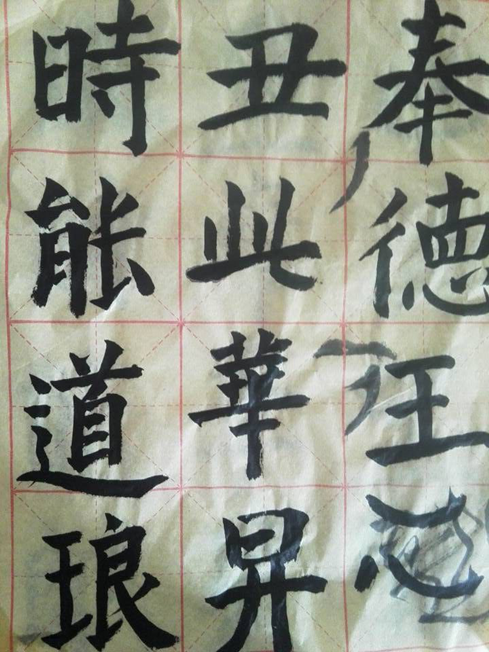 奉德心
丑此華昇
時能道琅